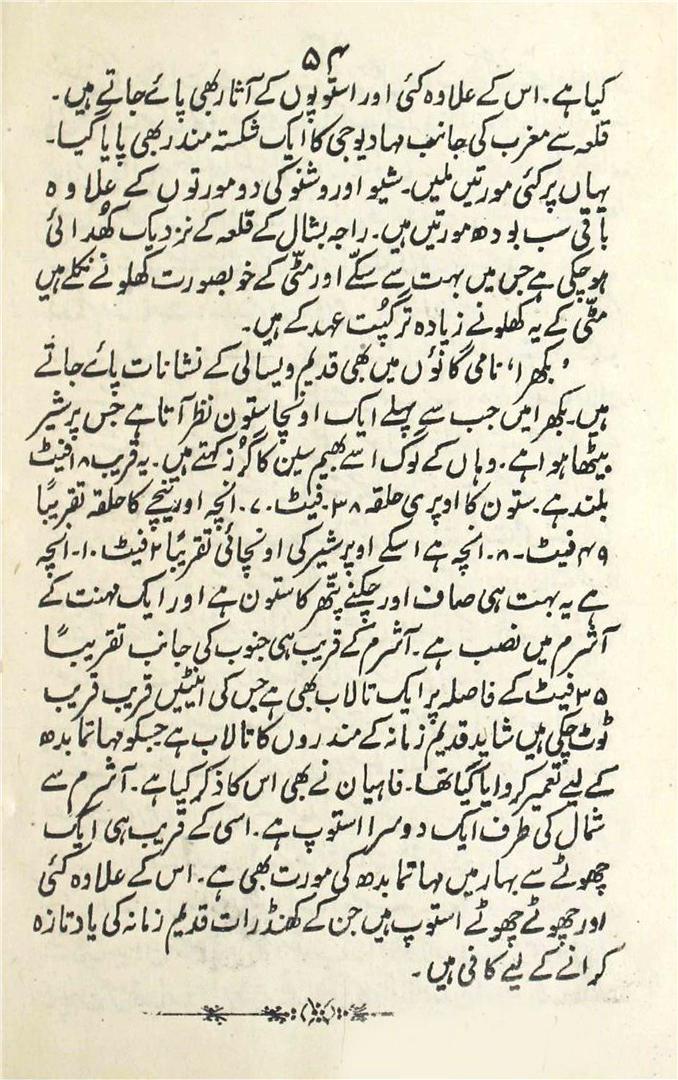 ۵۴
کیا ہے۔ اس کے علاوہ کئی اور استوپوں کے آثار بھی پائے جاتے ہیں۔
قلعہ سے مغرب کی جانب مہادیو جی کا ایک شکستہ مندر بھی پایا گیا۔
یہاں پر کئی مورتیں ملیں۔ شیو اور وشنو کی دو مورتوں کے علاوہ
باقی سب بودھ مورتیں ہیں۔ راجہ بشال کے قلعہ کے نزدیک کھُدائی
ہو چکی ہے جس میں بہت سے سکّے اور مٹّی کے خوبصورت کھلونے نکلے ہیں
مٹّی کے یہ کھلونے زیادہ تر گپُت عہد کے ہیں۔
'بکھرا' نامی گانؤں میں بھی قدیم ویسالی کے نشانات پائے جاتے
ہیں۔ بکھرا میں جب سے پہلے ایک اونچا ستون نظر آتا ہے جس پر شیر
بیٹھا ہوا ہے۔ وہاں کے لوگ اسے بھیم سین کا گُرز کہتے ہیں۔ یہ قریب ۱۸ فیٹ
بلند ہے۔ ستون کا اوپری حلقہ ۳۸ فیٹ۔ ۷۔ انچہ اور نیچے کا حلقہ تقریباً
۴۹ فیٹ۔ ۸۔ انچہ ہے اسکے اوپر شیر کی اونچائی تقریباً ۲ فیٹ ۱۰۔ انچہ
ہے یہ بہت ہی صاف اور چکنے پتّھر کا ستون ہے اور ایک مہنت کے
آشرم میں نصب ہے۔ آشرم کے قریب ہی جنوب کی جانب تقریباً
۳۵ فیٹ کے فاصلہ پر ایک تالاب بھی ہے جس کی اینٹیں قریب قریب
ٹوٹ چکی ہیں شاید قدیم زمانہ کے مندروں کا تالاب ہے جسکو مہاتما بدھ
کے لیے تعمیر کروایا گیا تھا۔ فاہیان نے بھی اس کا ذکر کیا ہے۔ آشرم سے
شمال کی طرف ایک دوسرا استوپ ہے۔ اسی کے قریب ہی ایک
چھوٹے سے بہار میں مہاتما بدھ کی مورت بھی ہے۔ اس کے علاوہ کئی
اور چھوٹے چھوٹے استوپ ہیں جن کے کھنڈرات قدیم زمانہ کی یاد تازہ
کرانے کے لیے کافی ہیں۔